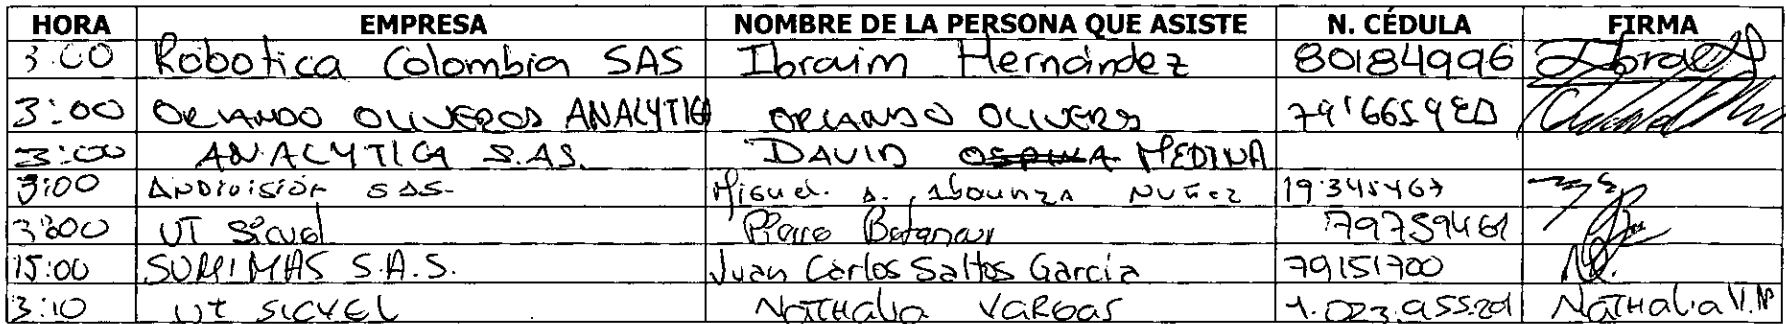 HORA EMPRESA NOMBRE DE LA PERSONA QUE ASISTE N. CÉDULA FIRMA
3:00 Robotica Colombia SAS Ibraim Hernández 80184996
3:00 ORLANDO OLIVEROS ANALYTICA ORLANDO OLIVEROS
3:00 ANALYTICA S.A.S. DAVID OSPINA MEDINA
3:00 ANDIVISIÓN SAS- Miguel. A. Abaunza Nuñez 19'345467
3:00 UT Sicvel
15:00 SUMIMAS S.A.S. Juan Carlos Saltos García 79151700
3:10 UT SICVEL NATHALIA VARGAS 1.023.955.201 NATHALIA V.